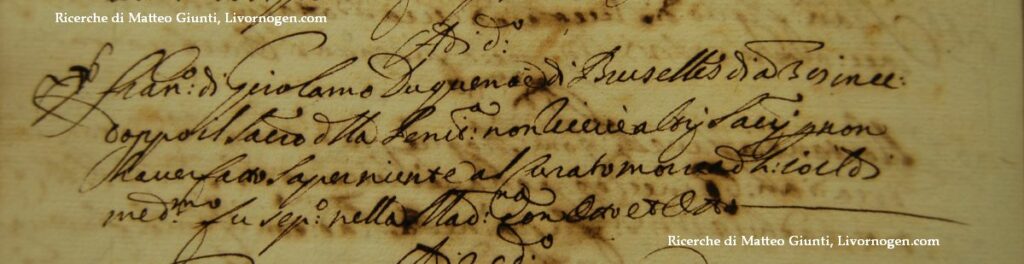 Ricerche di Matteo Giunti, Livornogen.com
Adi d.o
Fran.o di Girolamo Duquenoè di Bruselles di a
doppo il Sacro della Penit.a non ricevè altri Sacri non
haver fatto saper niente al Curato morì ad h:
med.mo fu sep.o nella Mad.na con
Adi d.o
Ricerche di Matteo Giunti, Livornogen.com